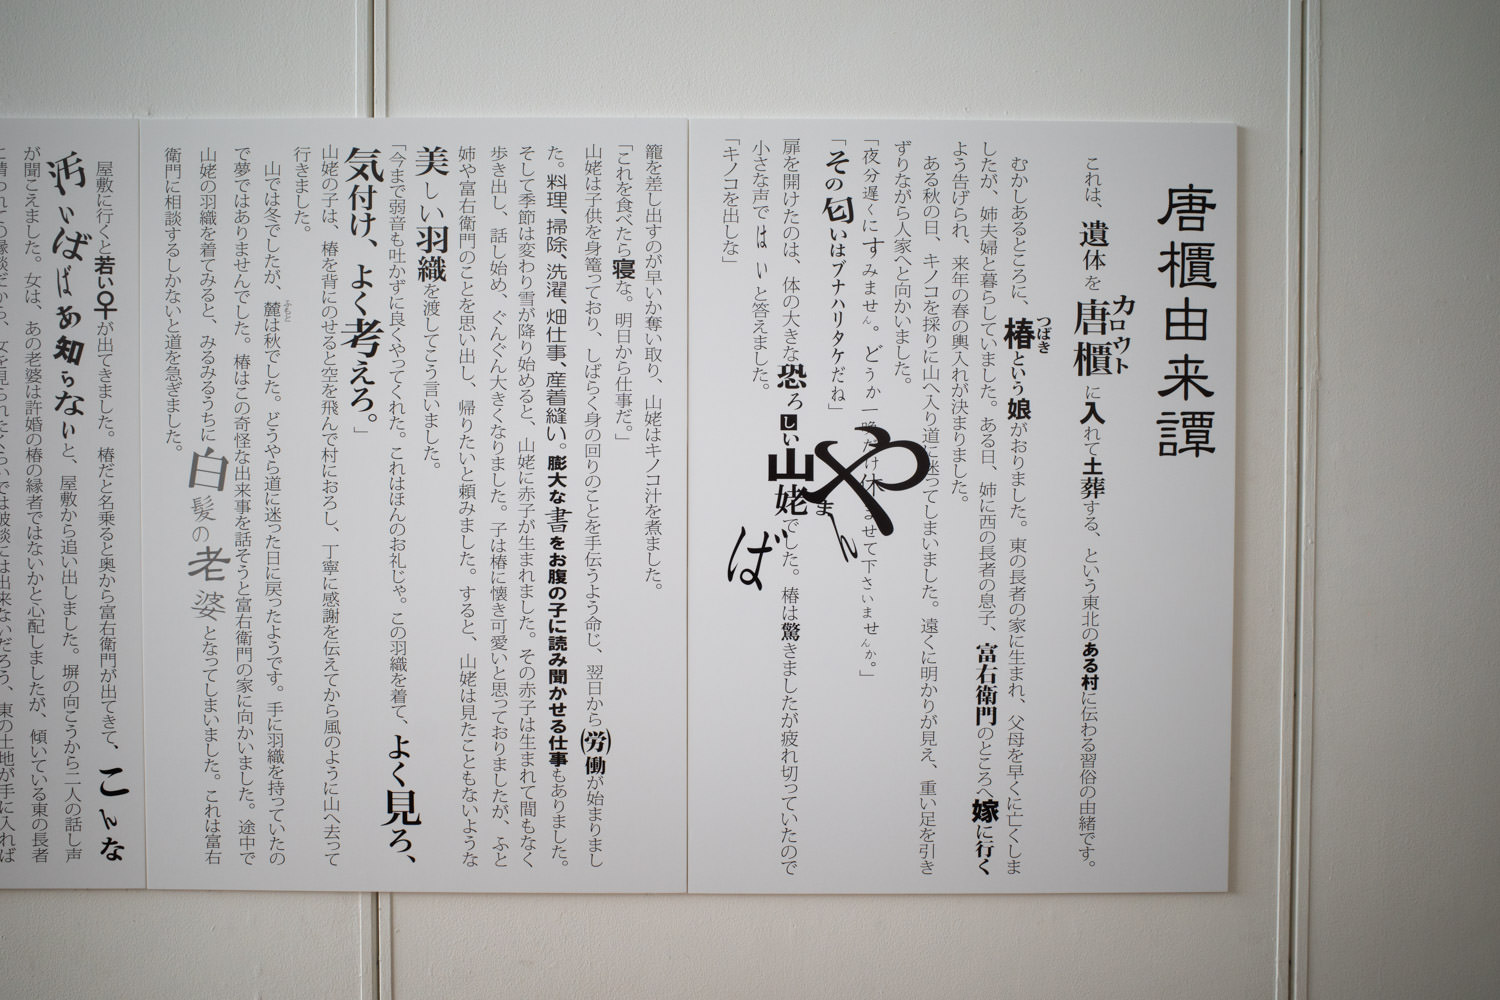 唐櫃由来譚
これは、遺体を唐櫃に入れて土葬する、という東北のある村に伝わる習俗の由緒です。
カロウト
むかしあるところに、椿という娘がおりました。東の長者の家に生まれ、父母を早くに亡くしま
つばき
したが、姉夫婦と暮らしていました。ある日、姉に西の長者の息子、富右衛門のところへ嫁に行く
よう告げられ、来年の春の輿入れが決まりました。
ある秋の日、キノコを採りに山へ入り道に迷ってしまいました。遠くに明かりが見え、重い足を引き
ずりながら人家へと向かいました。
「夜分遅くにすみません。どうか一晩だけ休ませて下さいませんか。」
「その匂いはブナハリタケだね」
扉を開けたのは、体の大きな恐ろしい山姥でした。椿は驚きましたが疲れ切っていたので
やまんば
小さな声ではいと答えました。
「キノコを出しな」
籠を差し出すのが早いか奪い取り、山姥はキノコ汁を煮ました。
「これを食べたら寝な。明日から仕事だ。」
山姥は子供を身篭っており、しばらく身の回りのことを手伝うよう命じ、翌日から(労)働が始まりまし
た。料理、掃除、洗濯、畑仕事、産着縫い。膨大な書をお腹の子に読み聞かせる仕事もありました。
そして季節は変わり雪が降り始めると、山姥に赤子が生まれました。その赤子は生まれて間もなく
歩き出し、話し始め、ぐんぐん大きくなりました。子は椿に懐き可愛いと思っておりましたが、ふと
姉や富右衛門のことを思い出し、帰りたいと頼みました。すると、山姥は見たこともないような
美しい羽織を渡してこう言いました。
「今まで弱音も吐かずに良くやってくれた。これはほんのお礼じゃ。この羽織を着て、よく見ろ、
気付け、よく考えろ。」
山姥の子は、椿を背にのせると空を飛んで村におろし、丁寧に感謝を伝えてから風のように山へ去って
行きました。
山では冬でしたが、麓は秋でした。どうやら道に迷った日に戻ったようです。手に羽織を持っていたの
ふもと
で夢ではありませんでした。椿はこの奇怪な出来事を話そうと富右衛門の家に向かいました。途中で
山姥の羽織を着てみると、みるみるうちに白髪の老婆となってしまいました。これは富右
衛門に相談するしかないと道を急ぎました。
屋敷に行くと若い女が出てきました。椿だと名乗ると奥から富右衛門が出てきて、こんな
汚いばばあ知らないと、屋敷から追い出しました。塀の向こうから二人の話し声
が聞こえました。女は、あの老婆は許婚の椿の縁者ではないかと心配しましたが、傾いている東の長者